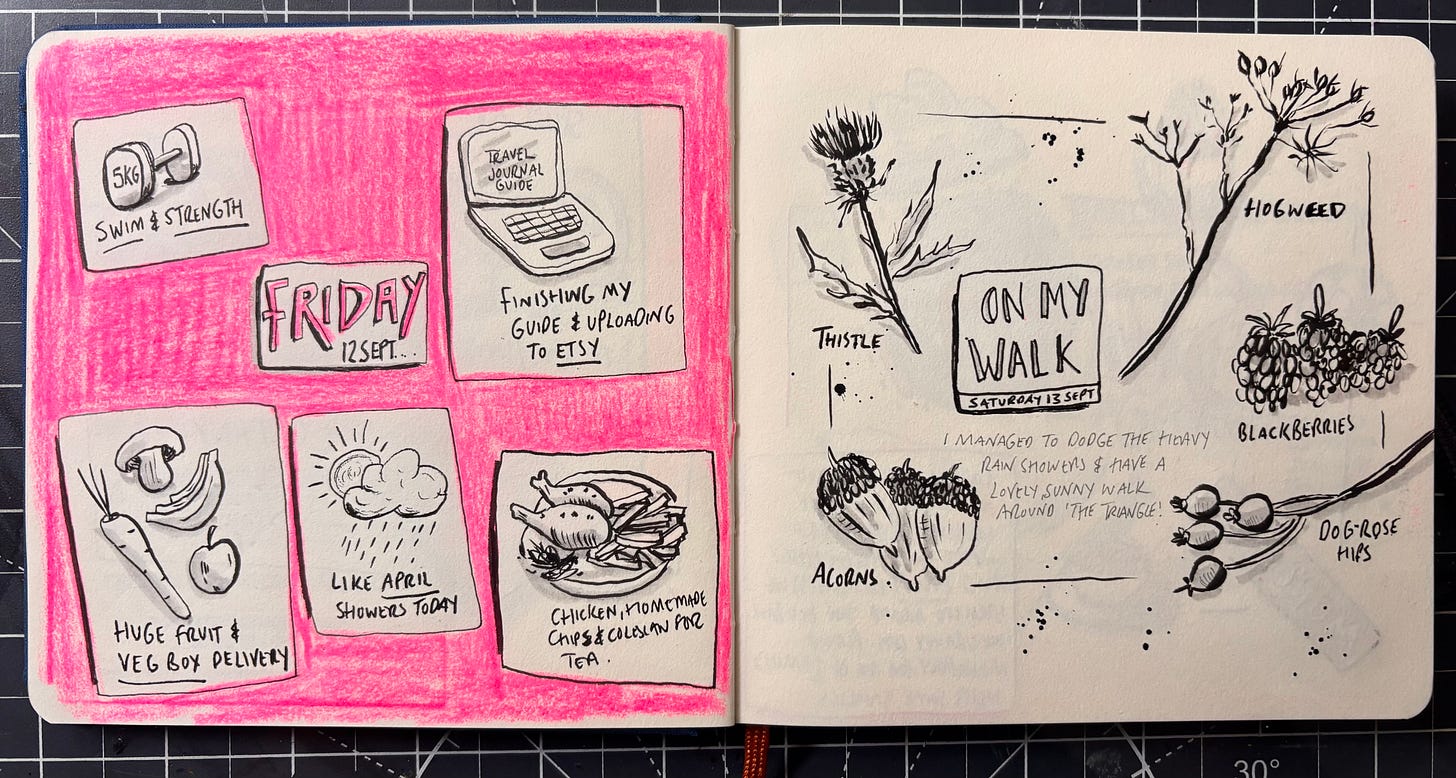 5KG
SWIM & STRENGTH
TRAVEL
JOURNAL
GUIDE
FINISHING MY
GUIDE & UPLOADING
TO ETSY
FRIDAY
12 SEPT...
HUGE FRUIT &
VEG BOX DELIVERY
LIKE APRIL
SHOWERS TODAY
CHICKEN, HOMEMADE
CHIPS & COLESLAW FOR
TEA.
THISTLE
HOGWEED
ON MY
WALK
SATURDAY 13 SEPT
BLACKBERRIES
I MANAGED TO DODGE THE HEAVY
RAIN SHOWERS & HAVE A
LOVELY SUNNY WALK
AROUND 'THE TRIANGLE'.
ACORNS.
DOG-ROSE
HIPS
30°